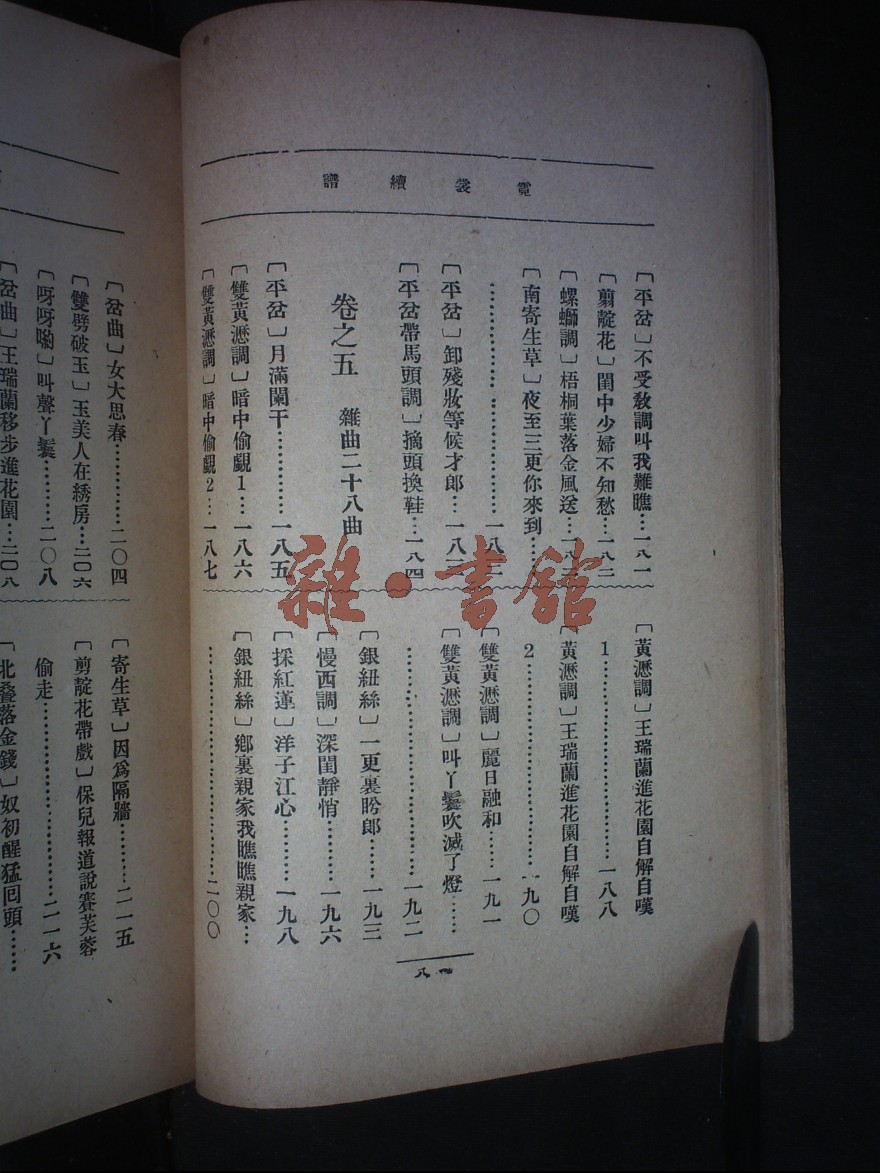 霓裳續譜
〔平岔〕不受教調叫我難瞧…一八一
〔剪靛花〕閨中少婦不知愁…一八二
〔螺螄調〕梧桐葉落金風送…一八
〔南寄生草〕夜至三更你來到…
………………………一八
〔平岔〕卸殘妝等候才郎…一八三
〔平岔帶馬頭調〕摘頭換鞋…一八四
卷之五 雜曲二十八曲
〔平岔〕月滿闌干…………一八五
〔雙黃瀝調〕暗中偷覷1…一八六
〔雙黃瀝調〕暗中偷覷2…一八七
〔黃瀝調〕王瑞蘭進花園自解自嘆
1………………………一八八
〔黃瀝調〕王瑞蘭進花園自解自嘆
2………………………一九〇
〔雙黃瀝調〕麗日融和……一九一
〔雙黃瀝調〕叫丫鬟吹滅了燈……
………………………一九二
〔銀紐絲〕一更裏盼郎……一九三
〔慢西調〕深閨靜悄………一九六
〔採紅蓮〕洋子江心………一九八
〔銀紐絲〕鄉裏親家我瞧瞧親家…
………………………二〇〇
八
〔岔曲〕女大思春…………二〇四
〔雙劈破玉〕玉美人在綉房…二〇六
〔呀呀喲〕叫聲丫鬟………二〇八
〔岔曲〕王瑞蘭移步進花園…二〇八
〔寄生草〕因爲隔牆………二一五
〔剪靛花帶戲〕保兒報道說賽芙蓉
偷走………………………二一六
〔北疊落金錢〕奴初醒猛回頭……
雜·書館